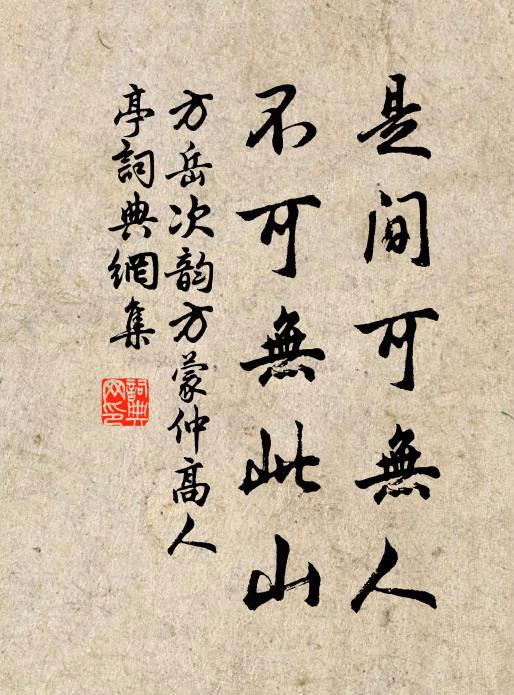 是間可無人
不可無此山
方岳次韵方蒙仲高人
亭詞典網集
詞典
网印